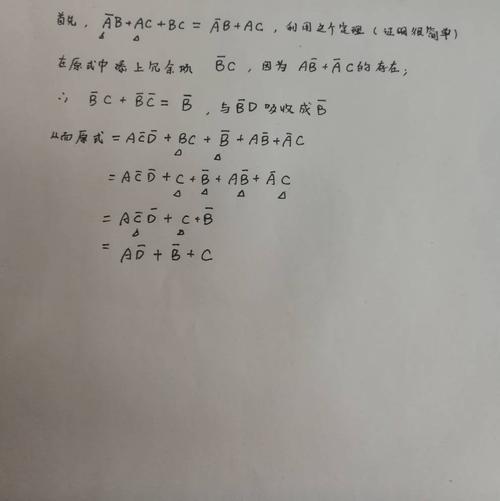 首先，A̅B+AC+BC = A̅B+AC，利用这个定理（证明很简单）
在原式中添上冗余项 B̅C，因为 AB̅+A̅C的存在；
∴ B̅C+B̅C̅=B̅，与B̅D吸收成B̅
从而原式=AC̅D̅+BC+B̅+AB̅+A̅C
=AC̅D̅+C+B̅+AB̅+A̅C
=AC̅D̅+C+B̅
=AD̅+B̅+C